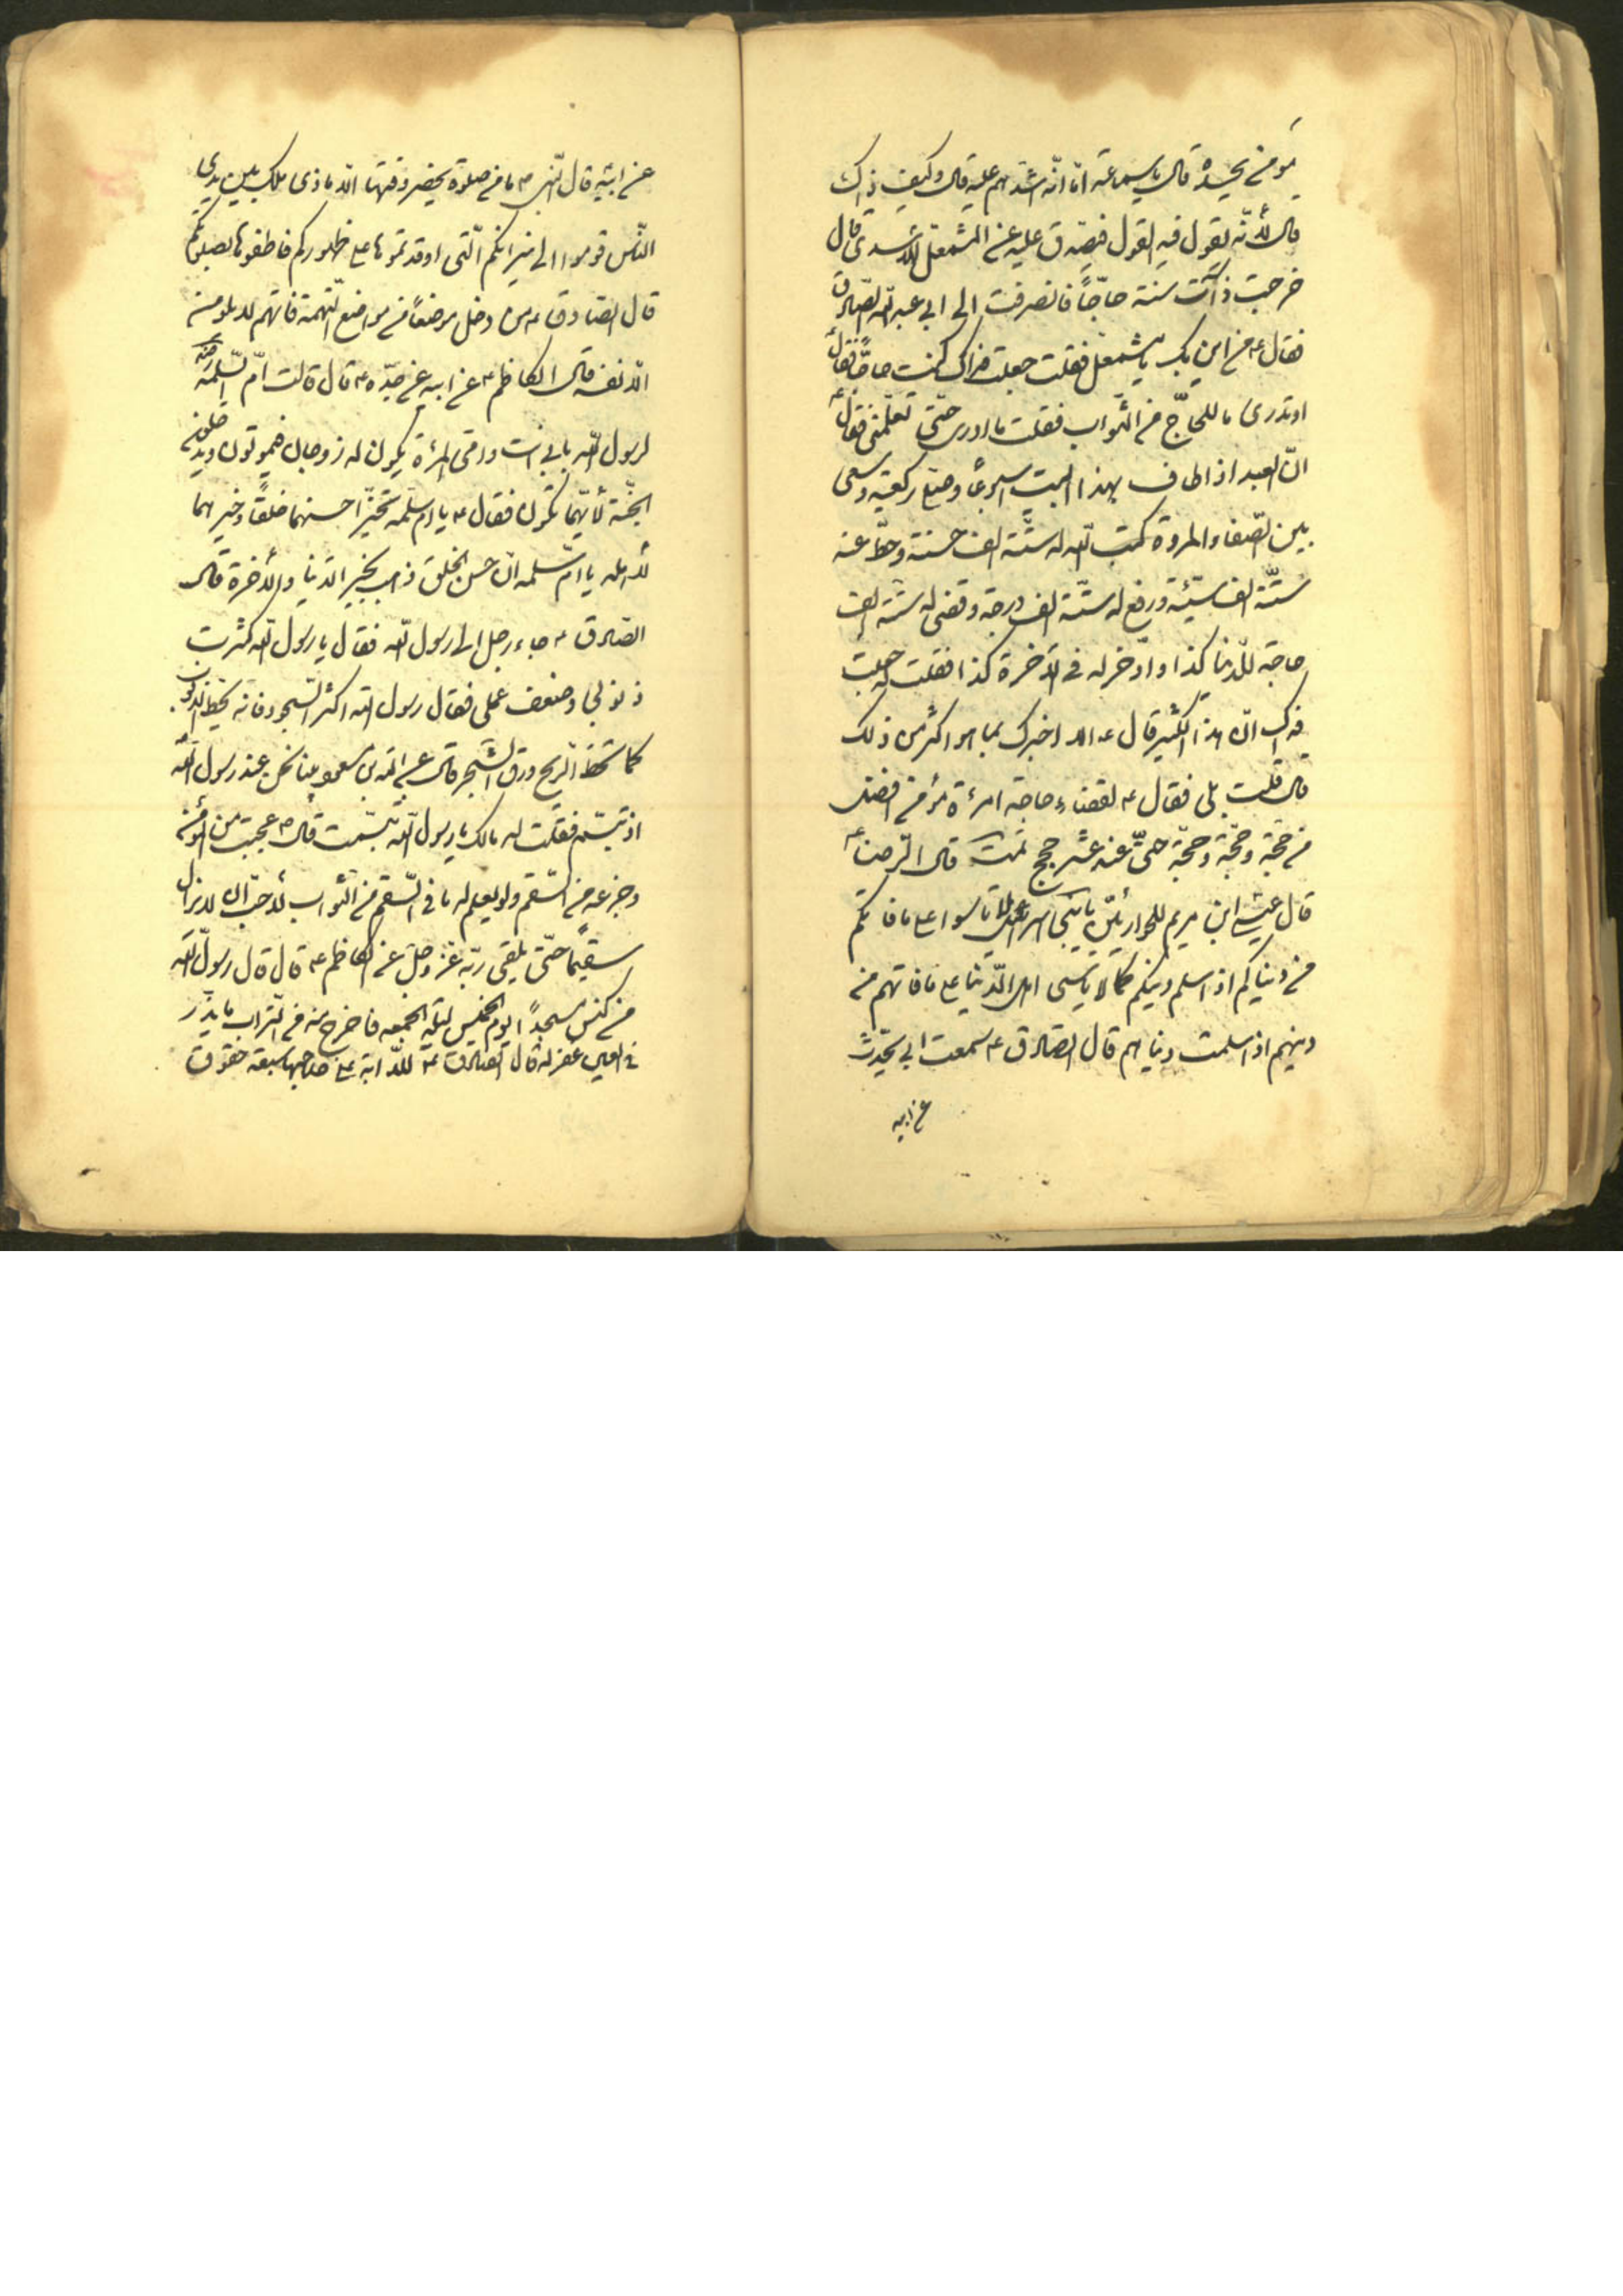 مومن يحسده قال يا سماعة اما انه اشدهم عليه قال وكيف ذاك
قال لأنه يقول فيه القول فيصدق عليه عن المشمعل الاسدى قال
خرجت ذات سنة حاجّاً فانصرفت الى ابى عبد الله الصادق
فقال ع من اين بك يا مشمعل فقلت جعلت فداك كنت حاجّاً فقال ع
اوتدرى ما للحاجّ من الثواب فقلت ما ادرى حتّى تعلّمنى فقال ع
انّ العبد اذا طاف بهذا البيت اسبوعًا وصلى ركعتيه وسعى
بين الصفا والمروة كتب الله له ستّة الف حسنة وحطّ عنه
ستّة الف سيّئة ورفع له ستّة الف درجة وقضى له ستة الف
حاجة للدّنيا كذا وادّخر له فى الآخرة كذا فقلت له جعلت
فداك انّ هذا الكثير قال ع الا اخبرك بما هو اكثر من ذلك
قال قلت بلى فقال ع لقضاء حاجة امرءة مؤمن افضل
من حجّة وحجّة وحجّة حتّى عد عشر حجج تمت قال الرضا ع
قال عيسى ابن مريم للحواريّين يا بنى اسرائيل لا تاسوا على ما فاتكم
من دنياكم اذا سلم دينكم كما لا ياسى اهل الدّنيا على ما فاتهم من
دينهم اذا سلمت دنياهم قال الصادق ع سمعت ابى يحدّث
عن ابيه
عن ابيه قال النّبى ص ما من صلوة يحضر وقتها الا نادى ملك بين يدى
النّاس قوموا الى نيرانكم الّتى اوقدتموها على ظهوركم فاطفوها بصلوتكم
قال الصادق ع من دخل موضعاً من مواضع التهمة فاتهم لا يلومن
الا نفسه قال الكاظم ع عن ابيه عن جدّه ع قال قالت امّ السّلمة رضى
لرسول الله بابى انت وامى المرءة يكون له زوجان فيموتون ويدخلون
الجنّة لأيهما تكون فقال ع يا ام سلمة تخيّر احسنهما خلقًا وخيرهما
لأهله يا امّ سلمه انّ حسن الخلق ذهب بخير الدّنيا والآخرة قال
الصّادق ع جاء رجل الى رسول الله فقال يا رسول الله كثرت
ذنوبى وضعف عملى فقال رسول الله اكثر السّجود فانه يحطّ الذنوب
كما تحطّ الريح ورق الشّجر قال عبد الله بن مسعود بينا نحن عند رسول الله
اذ تبسّم فقلت له مالك يا رسول الله تبسّمت قال ص عجبت من المؤمن
وجزعه من السّقم ولو يعلم له ما فى السّقم من الثواب لأحبّ ان لا يزال
سقيمًا حتّى يلقى ربّه عزّ وجلّ عن الكاظم ع قال قال رسول الله
من كنس مسجدًا يوم الخميس ليلة الجمعه فاخرج منه من التراب ما يذر
فى العين غفر له قال الصادق ع للدّابة على صاحبها سبعة حقوق